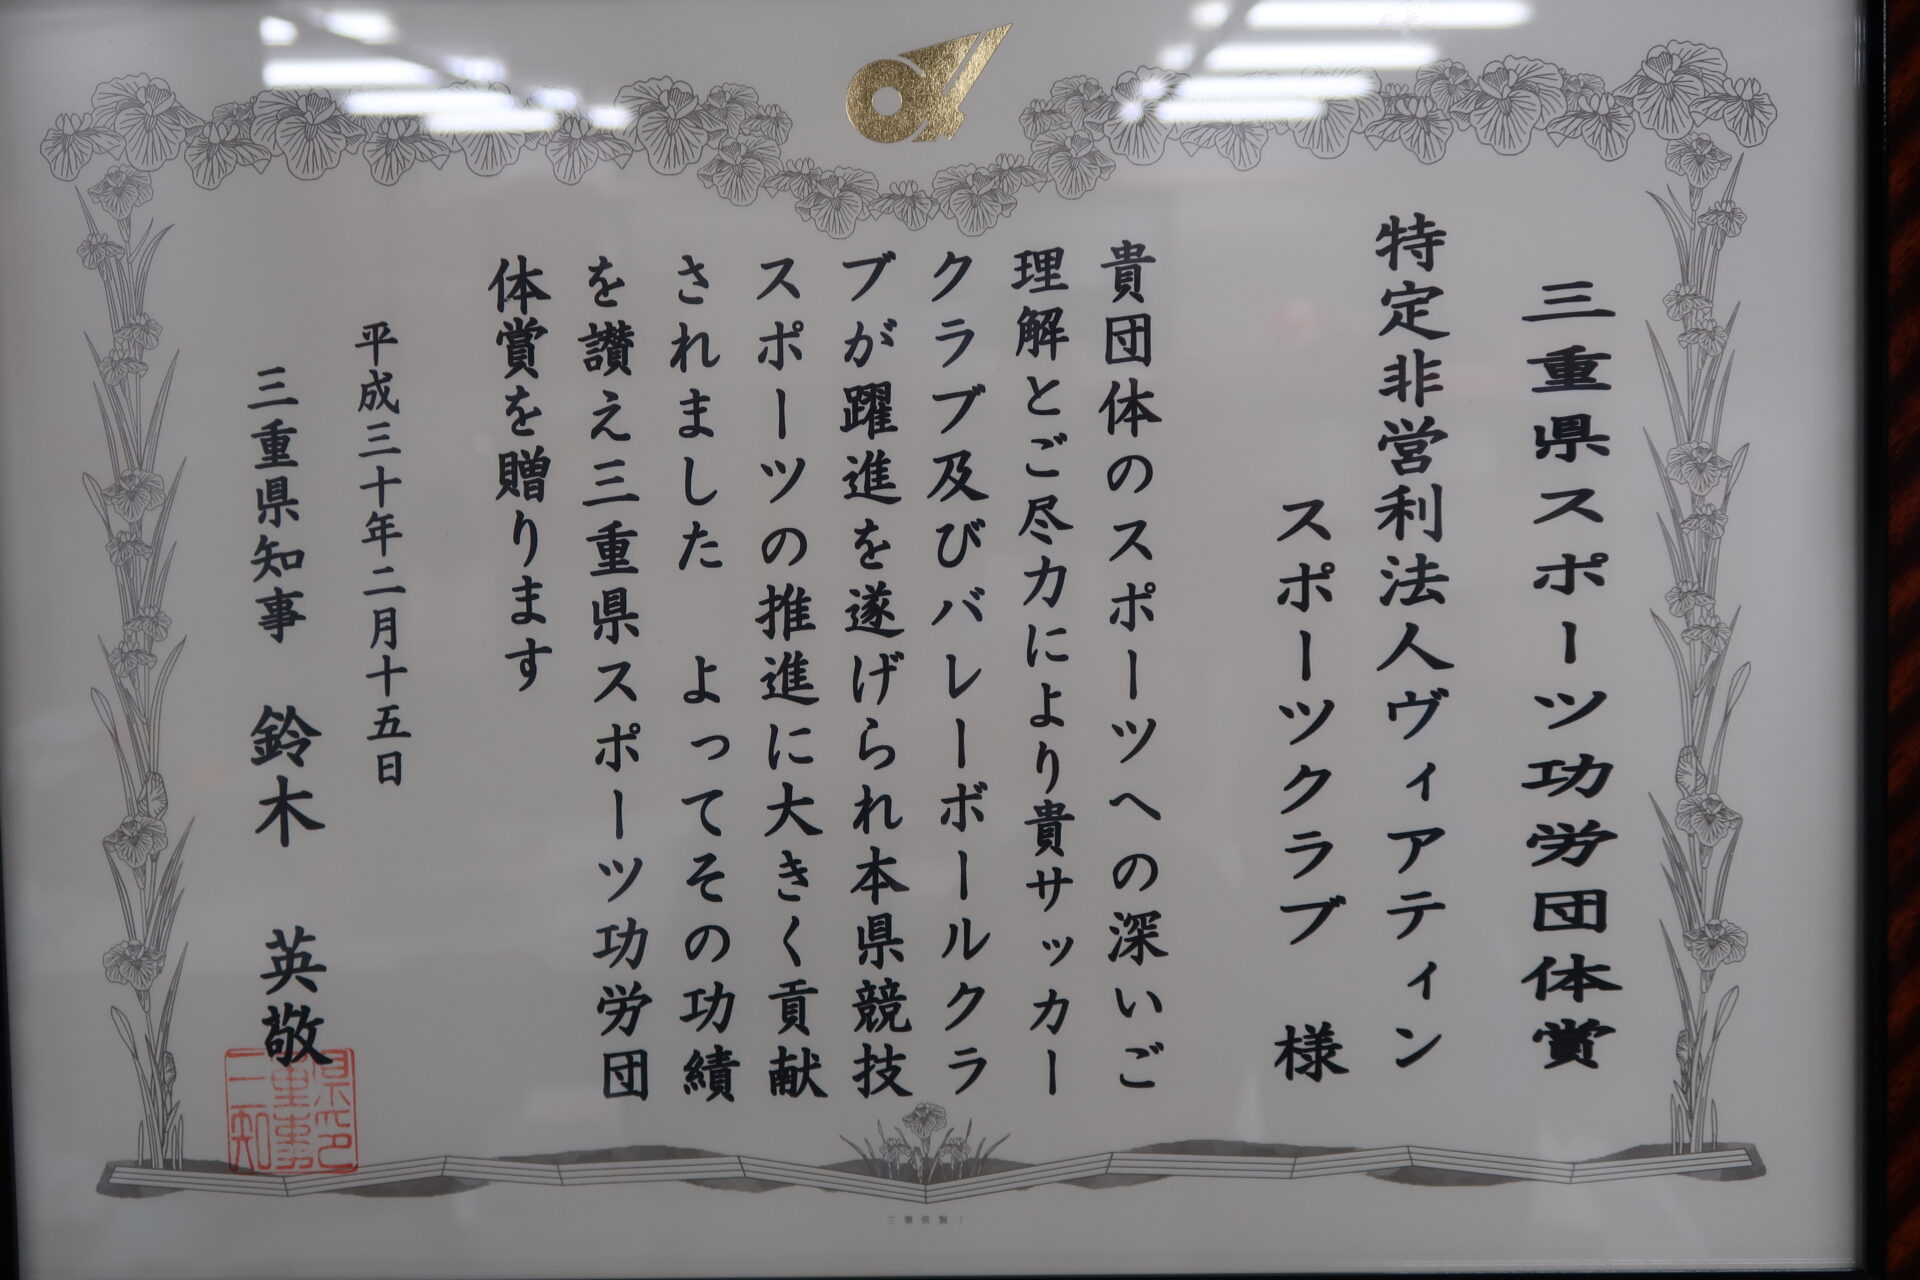 三重県スポーツ功労団体賞
特定非営利法人ヴィアティン
スポーツクラブ 様
貴団体のスポーツへの深いご
理解とご尽力により貴サッカー
クラブ及びバレーボールクラ
ブが躍進を遂げられ本県競技
スポーツの推進に大きく貢献
されました よってその功績
を讃え三重県スポーツ功労団
体賞を贈ります
平成三十年二月十五日
三重県知事 鈴木 英敬